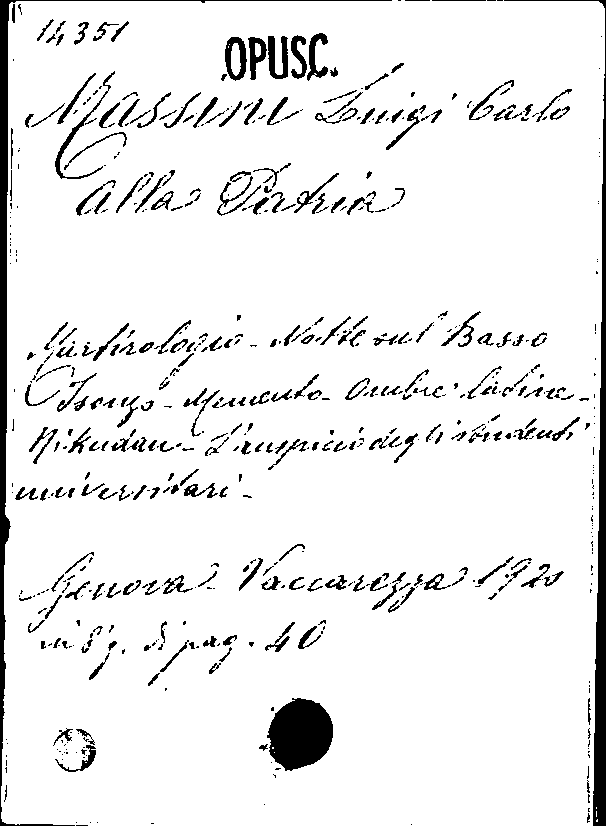 14351
OPUSC.
Massini Luigi Carlo
Alla Patria
Martirologio - Notte sul Basso
Isonzo - Memento - Ombre latine -
Nikudan - L'auspicio degli studenti
universitari -
Genova - Vaccarezza 1920
in 8º g. di pag. 40